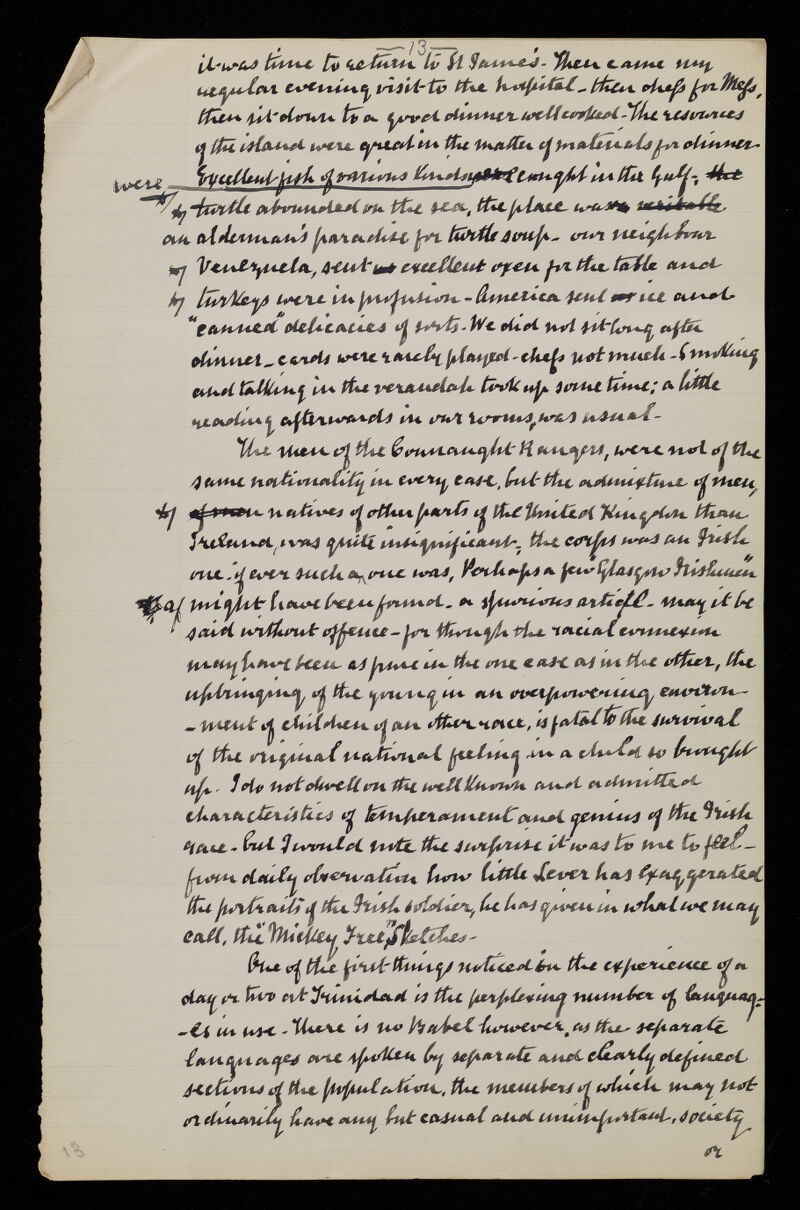 13
it was time to return to St James's. Then came my
regular evening visit to the hospital - then dress for Mess,
then sit down to a good dinner well cooked - The resources
of the island were great in the matter of materials for dinner
were Excellent fish of various kinds caught in the Gulf; the
turtle abounded on the sea, the place was veritable
an alderman's paradise for turtle soup - our neighbour
Venezuela, sent excellent oxen for the table and
turkeys were in profusion - America sent ice and
"canned" delicacies of sorts. We did not sit long after
dinner - cards were rarely played - chess not much - Smoking
and talking in the verandah took up some time; a little
reading afterwards in our rooms, was usual -
The men of the Connaught Rangers, were not of the
same nationality in every case, but the admixture of men,
of men natives of other parts of the United Kingdon than
Ireland, was quite insignificant; the corps was an Irish
one if ever such a one was, Perhaps a few "Glasgow Irishmen"
might have been found - a spurious article - may it be
said without offence - for though the racial connexion
may have been as pure in the one case as in the other, the
upbringing of the young in an overpowering environ-
-ment of children of an other race, is fatal to the survival
of the original national feeling in a child so brought
up. I do not dwell on the well known and admitted
characteristics of temperament and genius of the Irish
race - but I would note the surprise it was to me to feel -
from daily observation how little Lever has exaggerated
the portraits of the Irish soldier, he has given in what we may
call, the "Mickey Free" Sketches -
One of the first things noticed in the experience of a
day or two at Trinidad is the perplexing number of languag-
-es in use - There is no Babel however, as the separate
languages are spoken by separate and clearly defined
sections of the population, the members of which may not
ordinarily have any but casual and unimportant, society
or
13